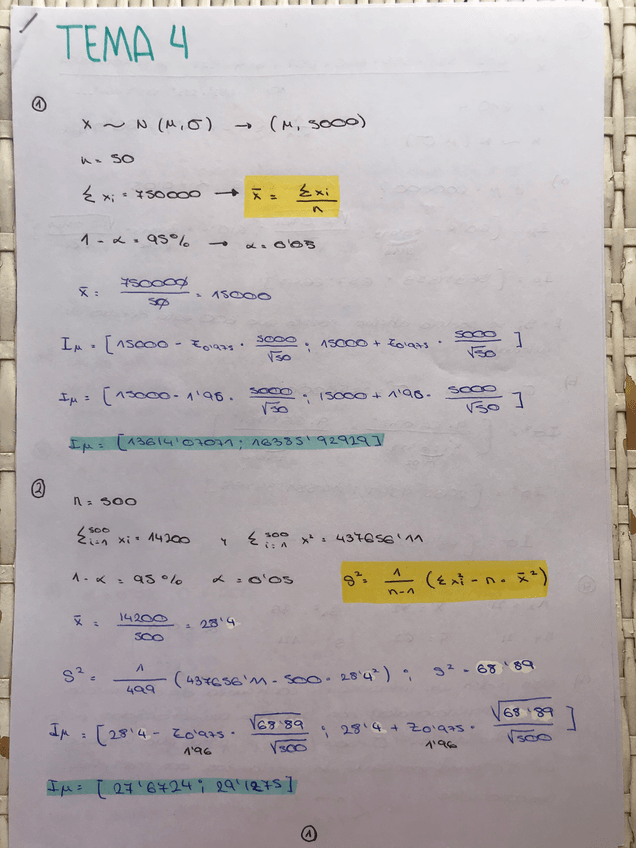 TEMA 4
①
X ~ N (μ, σ) → (μ, 5000)
n = 50
Σ xi = 750000 → x̄ = Σxi / n
1 - α = 95% → α = 0'05
x̄ = 750000 / 50 = 15000
Iμ = [15000 - z0'975 · 5000/√50 ; 15000 + z0'975 · 5000/√50]
Iμ = [15000 - 1'96 · 5000/√50 ; 15000 + 1'96 · 5000/√50]
Iμ = [13614'07071 ; 16385'92929]
②
n = 500
Σ500 i=1 xi = 14200 y Σ500 i=1 x² = 437656'11
1 - α = 95% α = 0'05 s² = 1/(n-1) (Σxi² - n · x̄²)
x̄ = 14200 / 500 = 28'4
S² = 1/499 (437656'11 - 500 · 28'4²) ; s² = 68'89
Iμ = [28'4 - z0'975 · √68'89/√500 ; 28'4 + z0'975 · √68'89/√500]
1'96 1'96
Iμ = [27'6724 ; 29'1275]
①